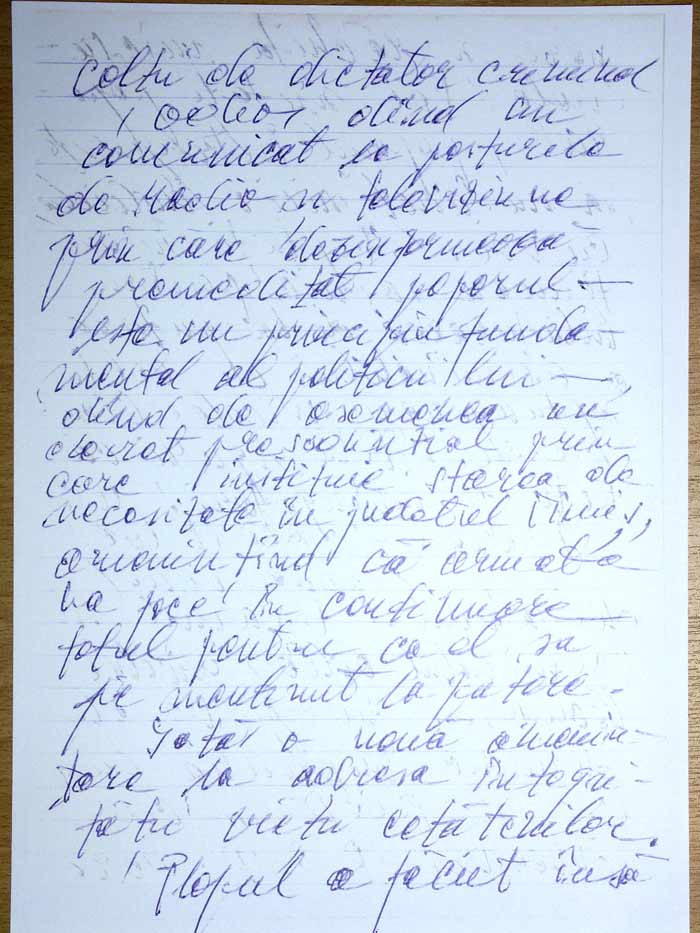 colții de dictator criminal
odios dînd un
comunicat la posturile
de radio și televiziune
prin care dezinformează
premeditat poporul –
este un principiu funda-
mental al politicii lui –,
dînd de asemenea un
decret prezidențial prin
care instituie starea de
necesitate în județul Timiș,
amenințînd că armata
va face în continuare
totul pentru ca el să
fie menținut la putere.
Iată o nouă amenin-
țare la adresa integri-
tății vieții cetățenilor.
Plopul a făcut însă